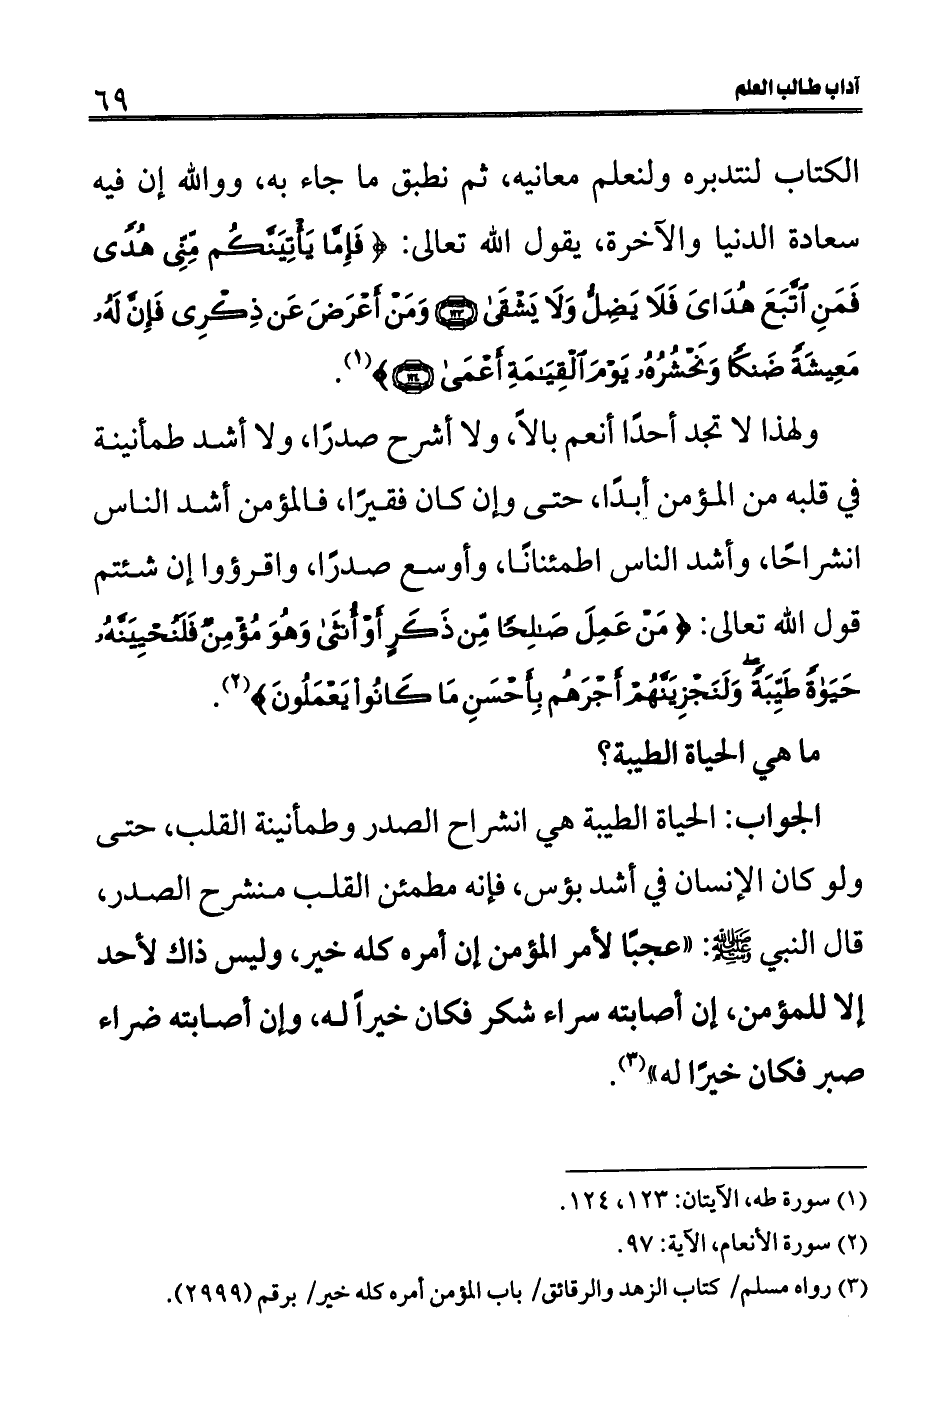 آداب طالب العلم ٦٩
الكتاب لنتدبره ولنعلم معانيه، ثم نطبق ما جاء به، ووالله إن فيه
سعادة الدنيا والآخرة، يقول الله تعالى: ﴿ فَإِمَّا يَأْتِيَنَّكُم مِّنِّى هُدًى
فَمَنِ ٱتَّبَعَ هُدَاىَ فَلَا يَضِلُّ وَلَا يَشْقَىٰ ١٢٣ وَمَنْ أَعْرَضَ عَن ذِكْرِى فَإِنَّ لَهُۥ
مَعِيشَةً ضَنكًا وَنَحْشُرُهُۥ يَوْمَ ٱلْقِيَـٰمَةِ أَعْمَىٰ ١٢٤ ﴾(١).
ولهذا لا تجد أحدًا أنعم بالاً، ولا أشرح صدرًا، ولا أشد طمأنينة
في قلبه من المؤمن أبدًا، حتى وإن كان فقيرًا، فالمؤمن أشد الناس
انشراحًا، وأشد الناس اطمئنانًا، وأوسع صدرًا، واقرؤوا إن شئتم
قول الله تعالى: ﴿ مَنْ عَمِلَ صَـٰلِحًا مِّن ذَكَرٍ أَوْ أُنثَىٰ وَهُوَ مُؤْمِنٌ فَلَنُحْيِيَنَّهُۥ
حَيَوٰةً طَيِّبَةً ۖ وَلَنَجْزِيَنَّهُمْ أَجْرَهُم بِأَحْسَنِ مَا كَانُوا۟ يَعْمَلُونَ ﴾(٢).
ما هي الحياة الطيبة؟
الجواب: الحياة الطيبة هي انشراح الصدر وطمأنينة القلب، حتى
ولو كان الإنسان في أشد بؤس، فإنه مطمئن القلب منشرح الصدر،
قال النبي ﷺ: «عجبًا لأمر المؤمن إن أمره كله خير، وليس ذاك لأحد
إلا للمؤمن، إن أصابته سراء شكر فكان خيراً له، وإن أصابته ضراء
صبر فكان خيرًا له»(٣).
(١) سورة طه، الآيتان: ١٢٣، ١٢٤.
(٢) سورة الأنعام، الآية: ٩٧.
(٣) رواه مسلم/ كتاب الزهد والرقائق/ باب المؤمن أمره كله خير/ برقم (٢٩٩٩).